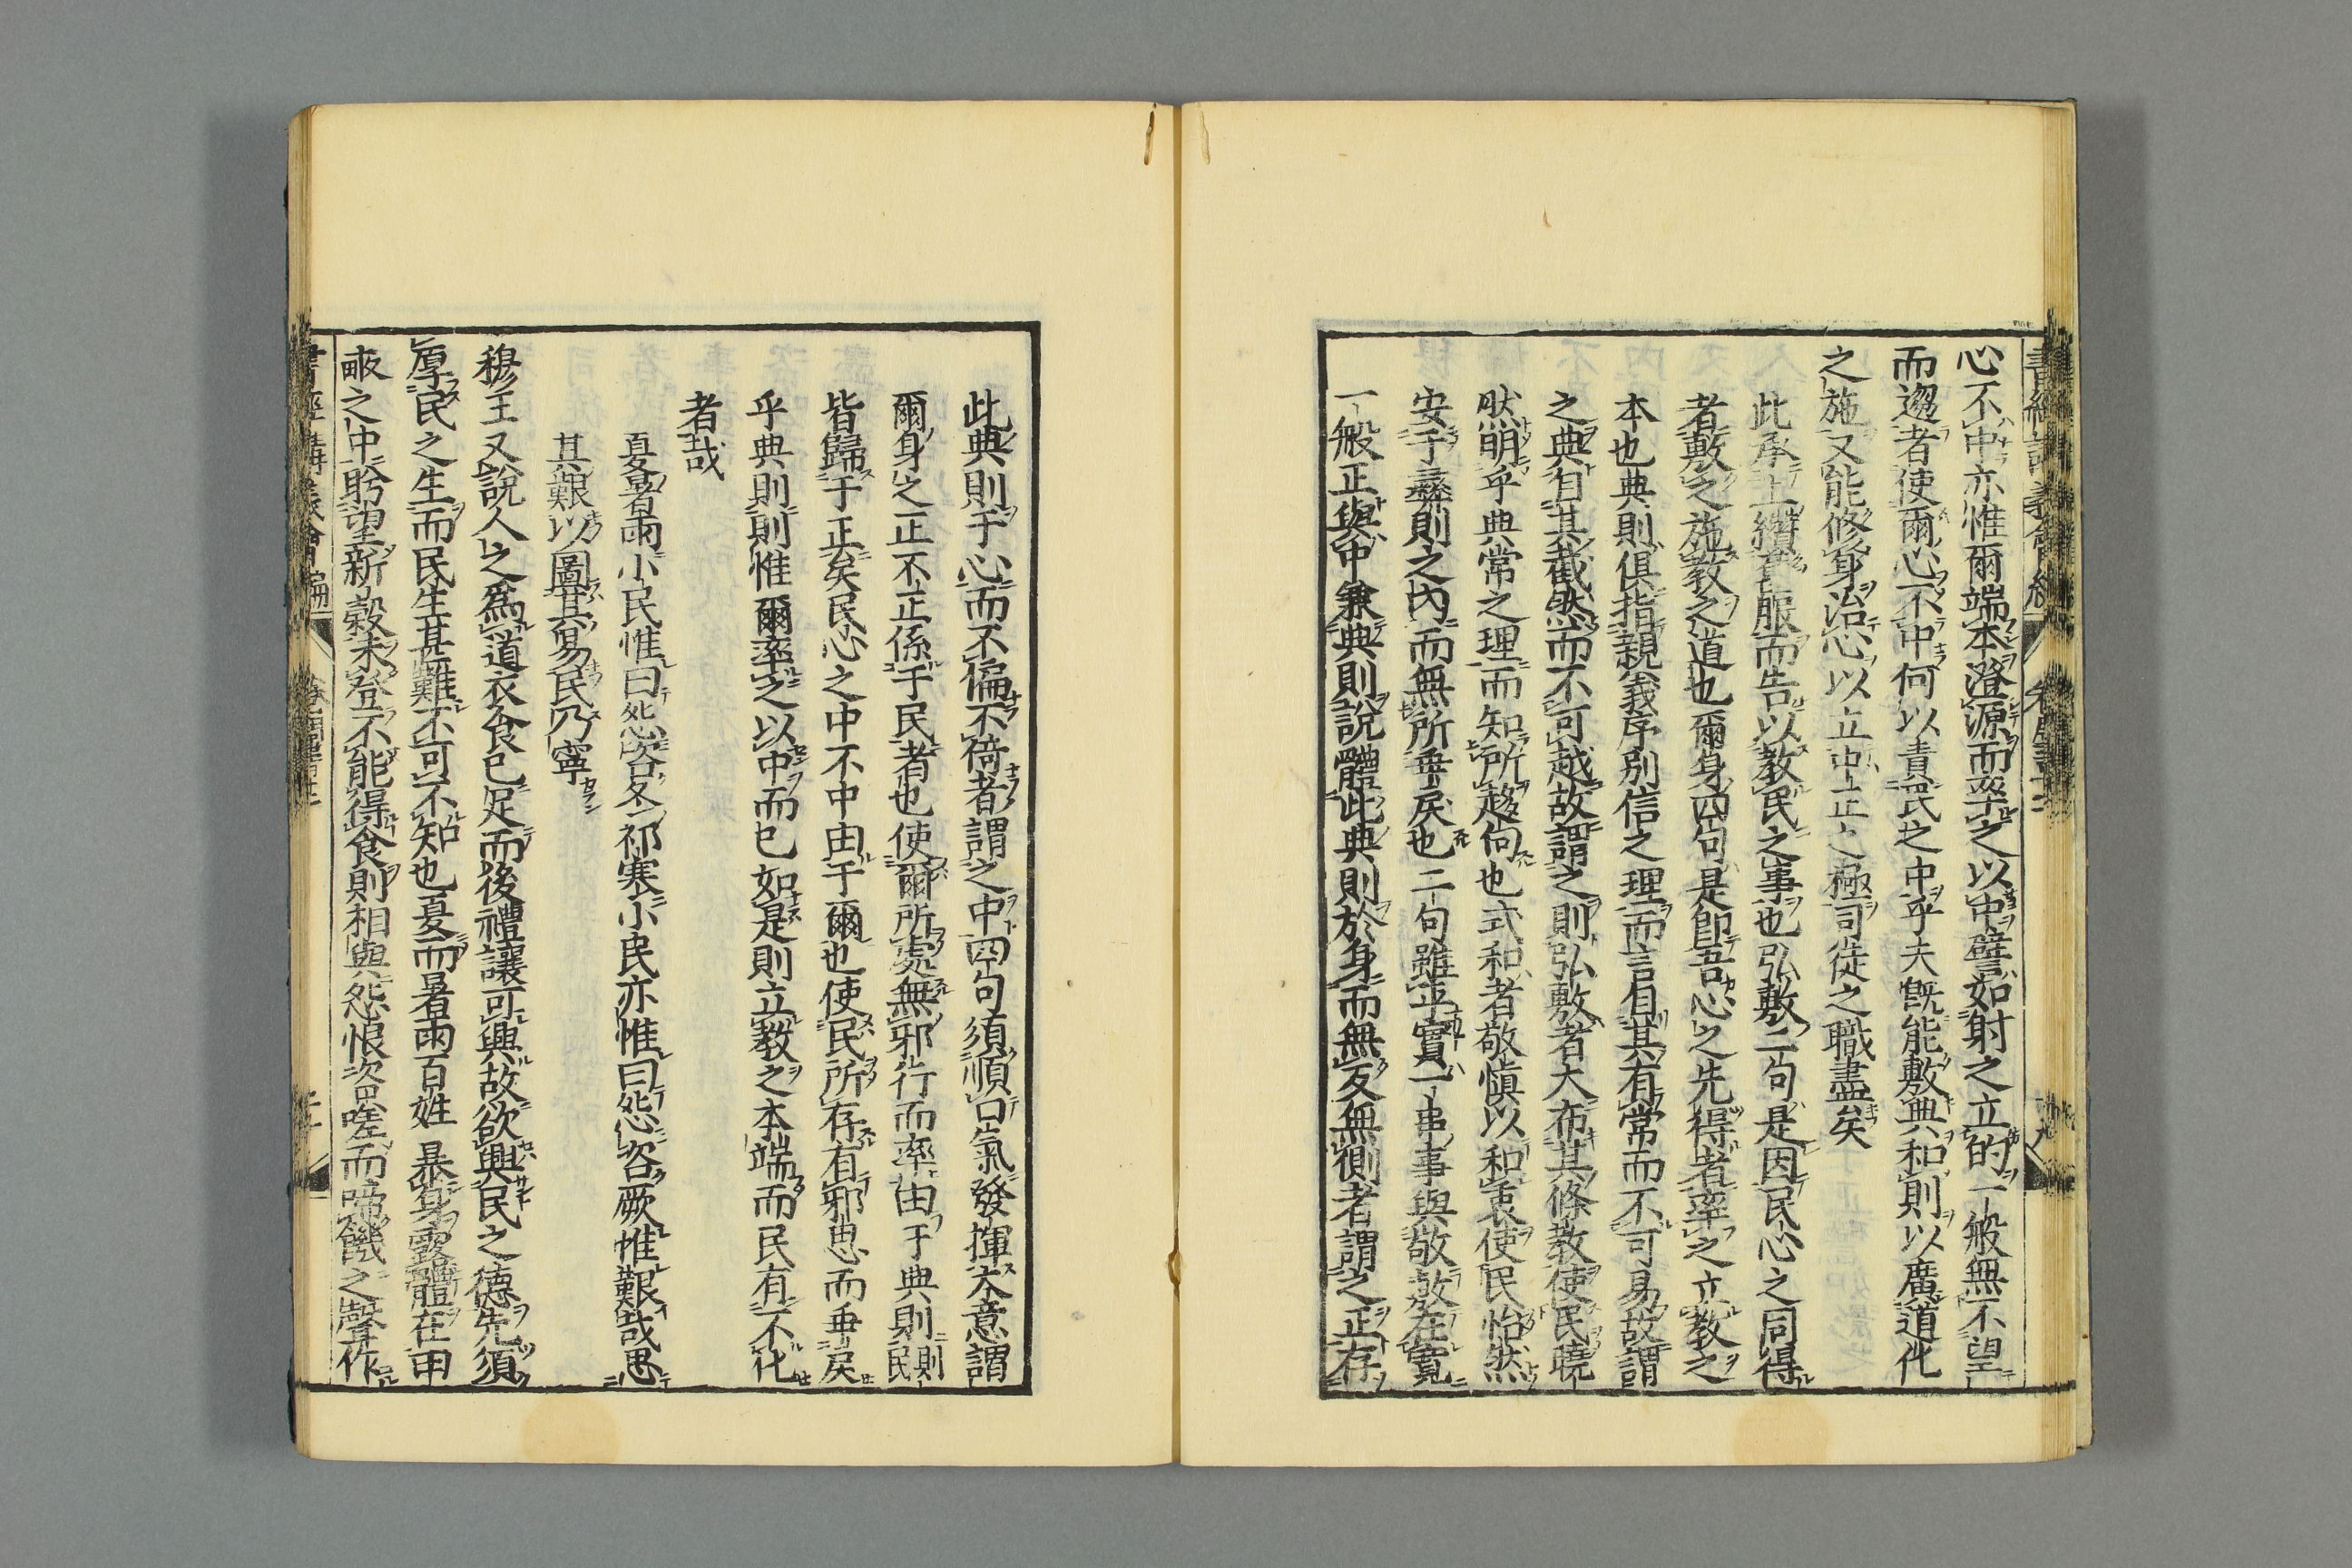 心不中亦惟爾端本澄源而率之以中譬如射之立的一般無不望
而趨者使爾心不中何以責民之中乎夫既能敷典和則以廣道化
之施又能修身治心以立中正之極司徒之職盡矣
此承上纘舊服而告以教民之事也弘敷二句是因民心之同得
者敷之施教之道也爾身四句是卽吾心之先得者率之立教之
本也典則俱指親義序別信之理而言自其有常而不可易故謂
之典自其截然而不可越故謂之則弘敷者大布其條教使民曉
然明乎典常之理而知所趍向也式和者敬慎以和衷使民怡然
安于彝則之內而無所乖戾也二句雖平實一串事與敬敷在寬
一般正與中兼典則說體此典則於身而無反無側者謂之正存
此典則于心而不偏不倚者謂之中四句須順口氣發揮大意謂
爾身之正不正係于民者也使爾所處無邪行而率由于典則則民
皆歸于正矣民心之中不中由于爾也使民所存有邪思而乖戾
乎典則則惟爾率之以中而已如是則立教之本端而民有不化
者哉
夏暑雨小民惟曰怨咨冬祁寒小民亦惟曰怨咨厥惟艱哉思
其艱以圖其易民乃寧
穆王又說人之爲道衣食已足而後禮讓可興故欲興民之德先須
厚民之生而民生甚難不可不知也夏而暑雨百姓暴身露體在田
畝之中盻望新穀未登不能得食則相與怨恨咨嗟而啼饑之聲作
書經講義會編